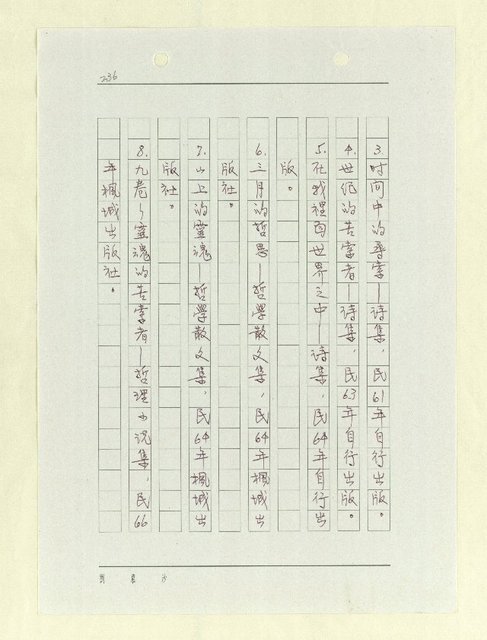 236
3.時间中的尋索—诗集，民61年自行出版。
4.世纪的苦索者—诗集，民63年自行出版。
5.在我裡面世界之中—诗集，民64年自行出
版。
6.三月的哲思—哲學散文集，民64年楓城出
版社。
7.山上的靈魂—哲學散文集，民64年楓城出
版社。
8.九卷—靈魂的苦索者—哲理小说集，民66
年楓城出版社。